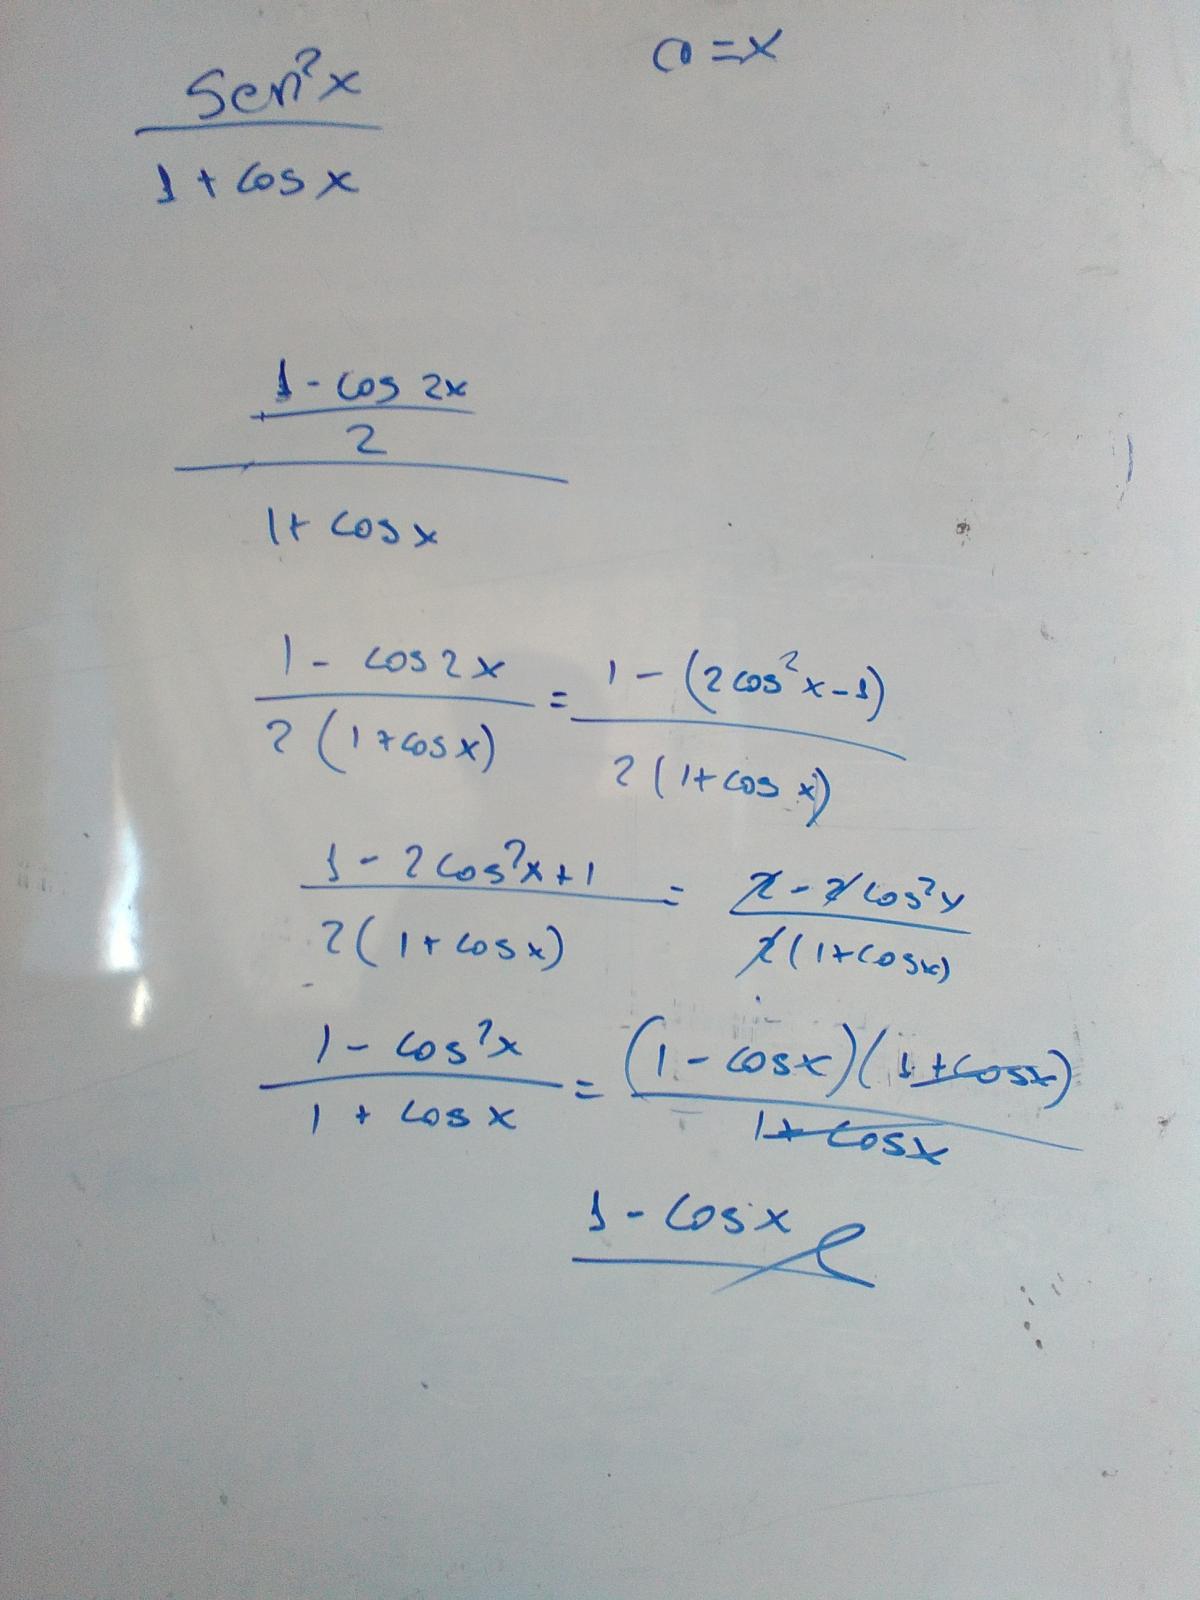 Sen²x
1 + cos x
a = x
1 - cos 2x
2
1 + cos x
1 - cos 2x = 1 - (2cos²x - 1)
2(1 + cos x) 2(1 + cos x)
1 - 2cos²x + 1 = 2 - 2cos²x
2(1 + cos x) 2(1 + cos x)
1 - cos²x = (1 - cos x)(1 + cos x)
1 + cos x 1 + cos x
1 - cos x